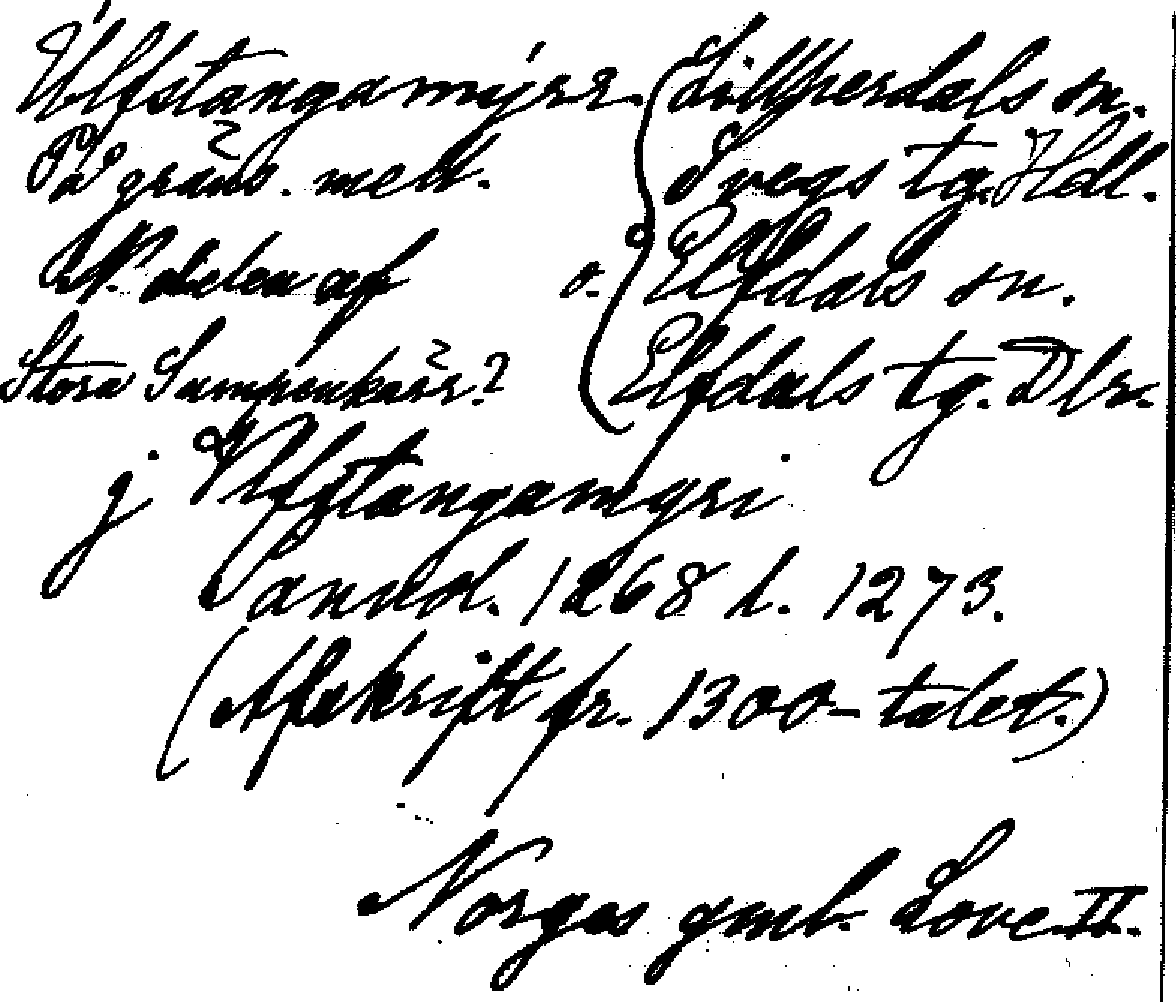 Ulfstangamýrr. Lillherdals sn.
På gräns. mell. Svegs tg. Hdl.
N. delen af o. Elfdals sn.
Stora Sumpenkärr? Elfdals tg. Dlr.
j Ulfstangamyri
annd. 1268 l. 1273.
(Afskrift fr. 1300-talet.)
Norges gml. Love II.